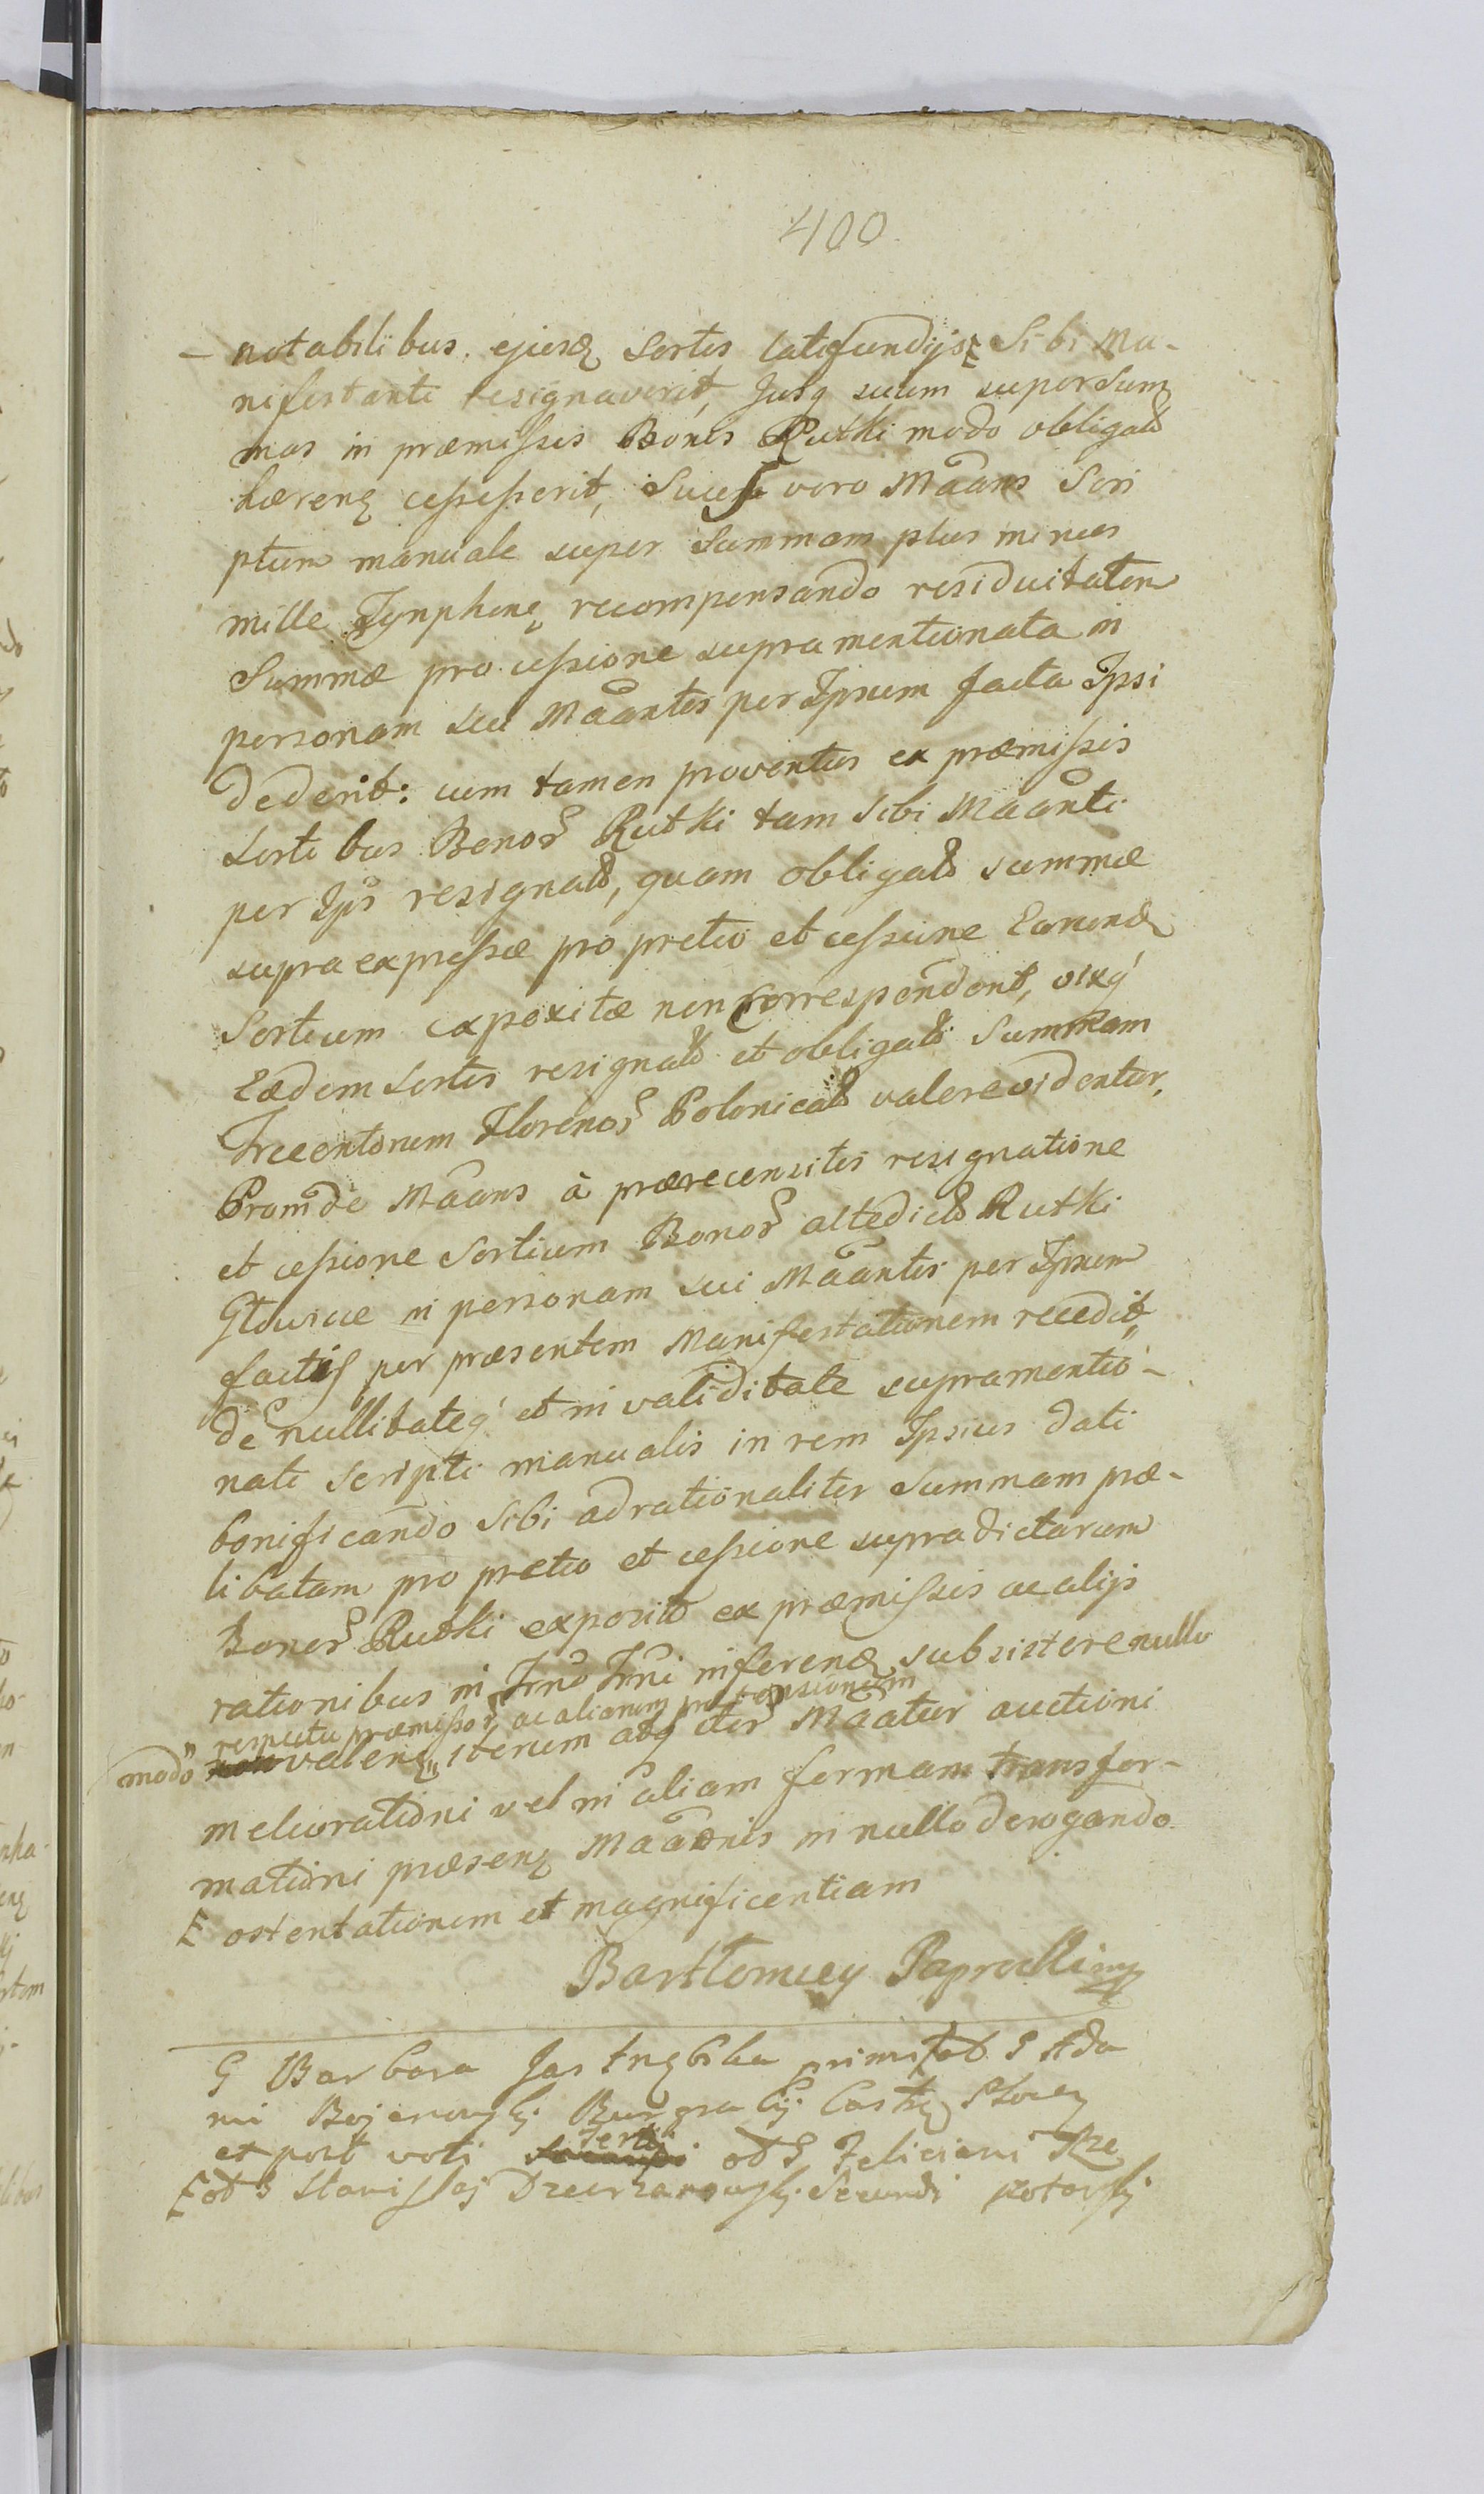 400
– notabilibus. ejusq sortis latifundijs E Sibi Ma-
nifestanti resignaverit, Jusq suum super Sum
mas in præmissis Bonis Rutki modo obligato
hærenq cessesserit, vero Māans Scri
ptum manuale super Summam plus minus
mille Tynphonq recompensando residuitatem
Summæ pro cessione supra mentionata in
personam sui Māantis per Ipsum facta Ipsi
dederit: cum tamen proventus ex præmissis
sortibus Bonor Rutki tam sibi Māanti
per Ips resignato, quam obligato summæ
supra expressæ pro pretio et cessione Earund
Sortium expositæ non correspondent, vixq
Eædem sortes resignato et obligato Summam
Trecentorum Florenor Polonicalo valere videntur,
Proinde Māans à prærecensitis resignatione
et cessione Sortium Bonor altedicto Rutki
Głowicæ in personam sui Māantis per Ipsum
factis per præsentem Manifestationem recedit,
de nullitateq et invaliditate supramentio-
nati Scripti manualis in rem Ipsius dati
bonificando Sibi adrationaliter Summam præ-
libatam pro pretio et cessione supradictarum
Bonor Rutki exposito ex præmissis ac alijs
rationibus in Trno Trni inferend subsistere nullo
respectu præmissor ac aliarum prætensionum
modo valenq iterum atq iter Māatur auctioni
meliorationi vel in aliam formam transfor-
mationi præsenq Māaonis in nullo derogando
E ostentationem et magnificentiam
Bartłomiey Paprocki mp
G Barbara Jastrzębska primi od G Ada
mi Bojanowskj Burgrabij Castr
et post voti Tertij od G Feliciani Rze
E od G Stanislaj Dzierzanowskj Secundi